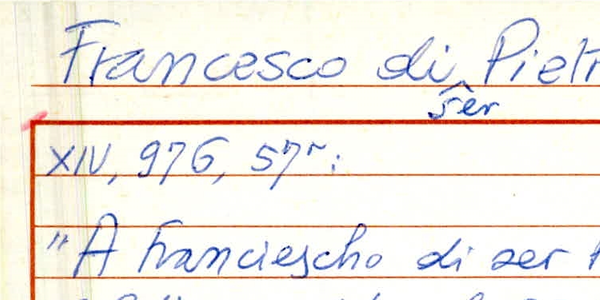 Francesco di Piet
ser
XIV, 976, 57r:
"A Franciescho di ser